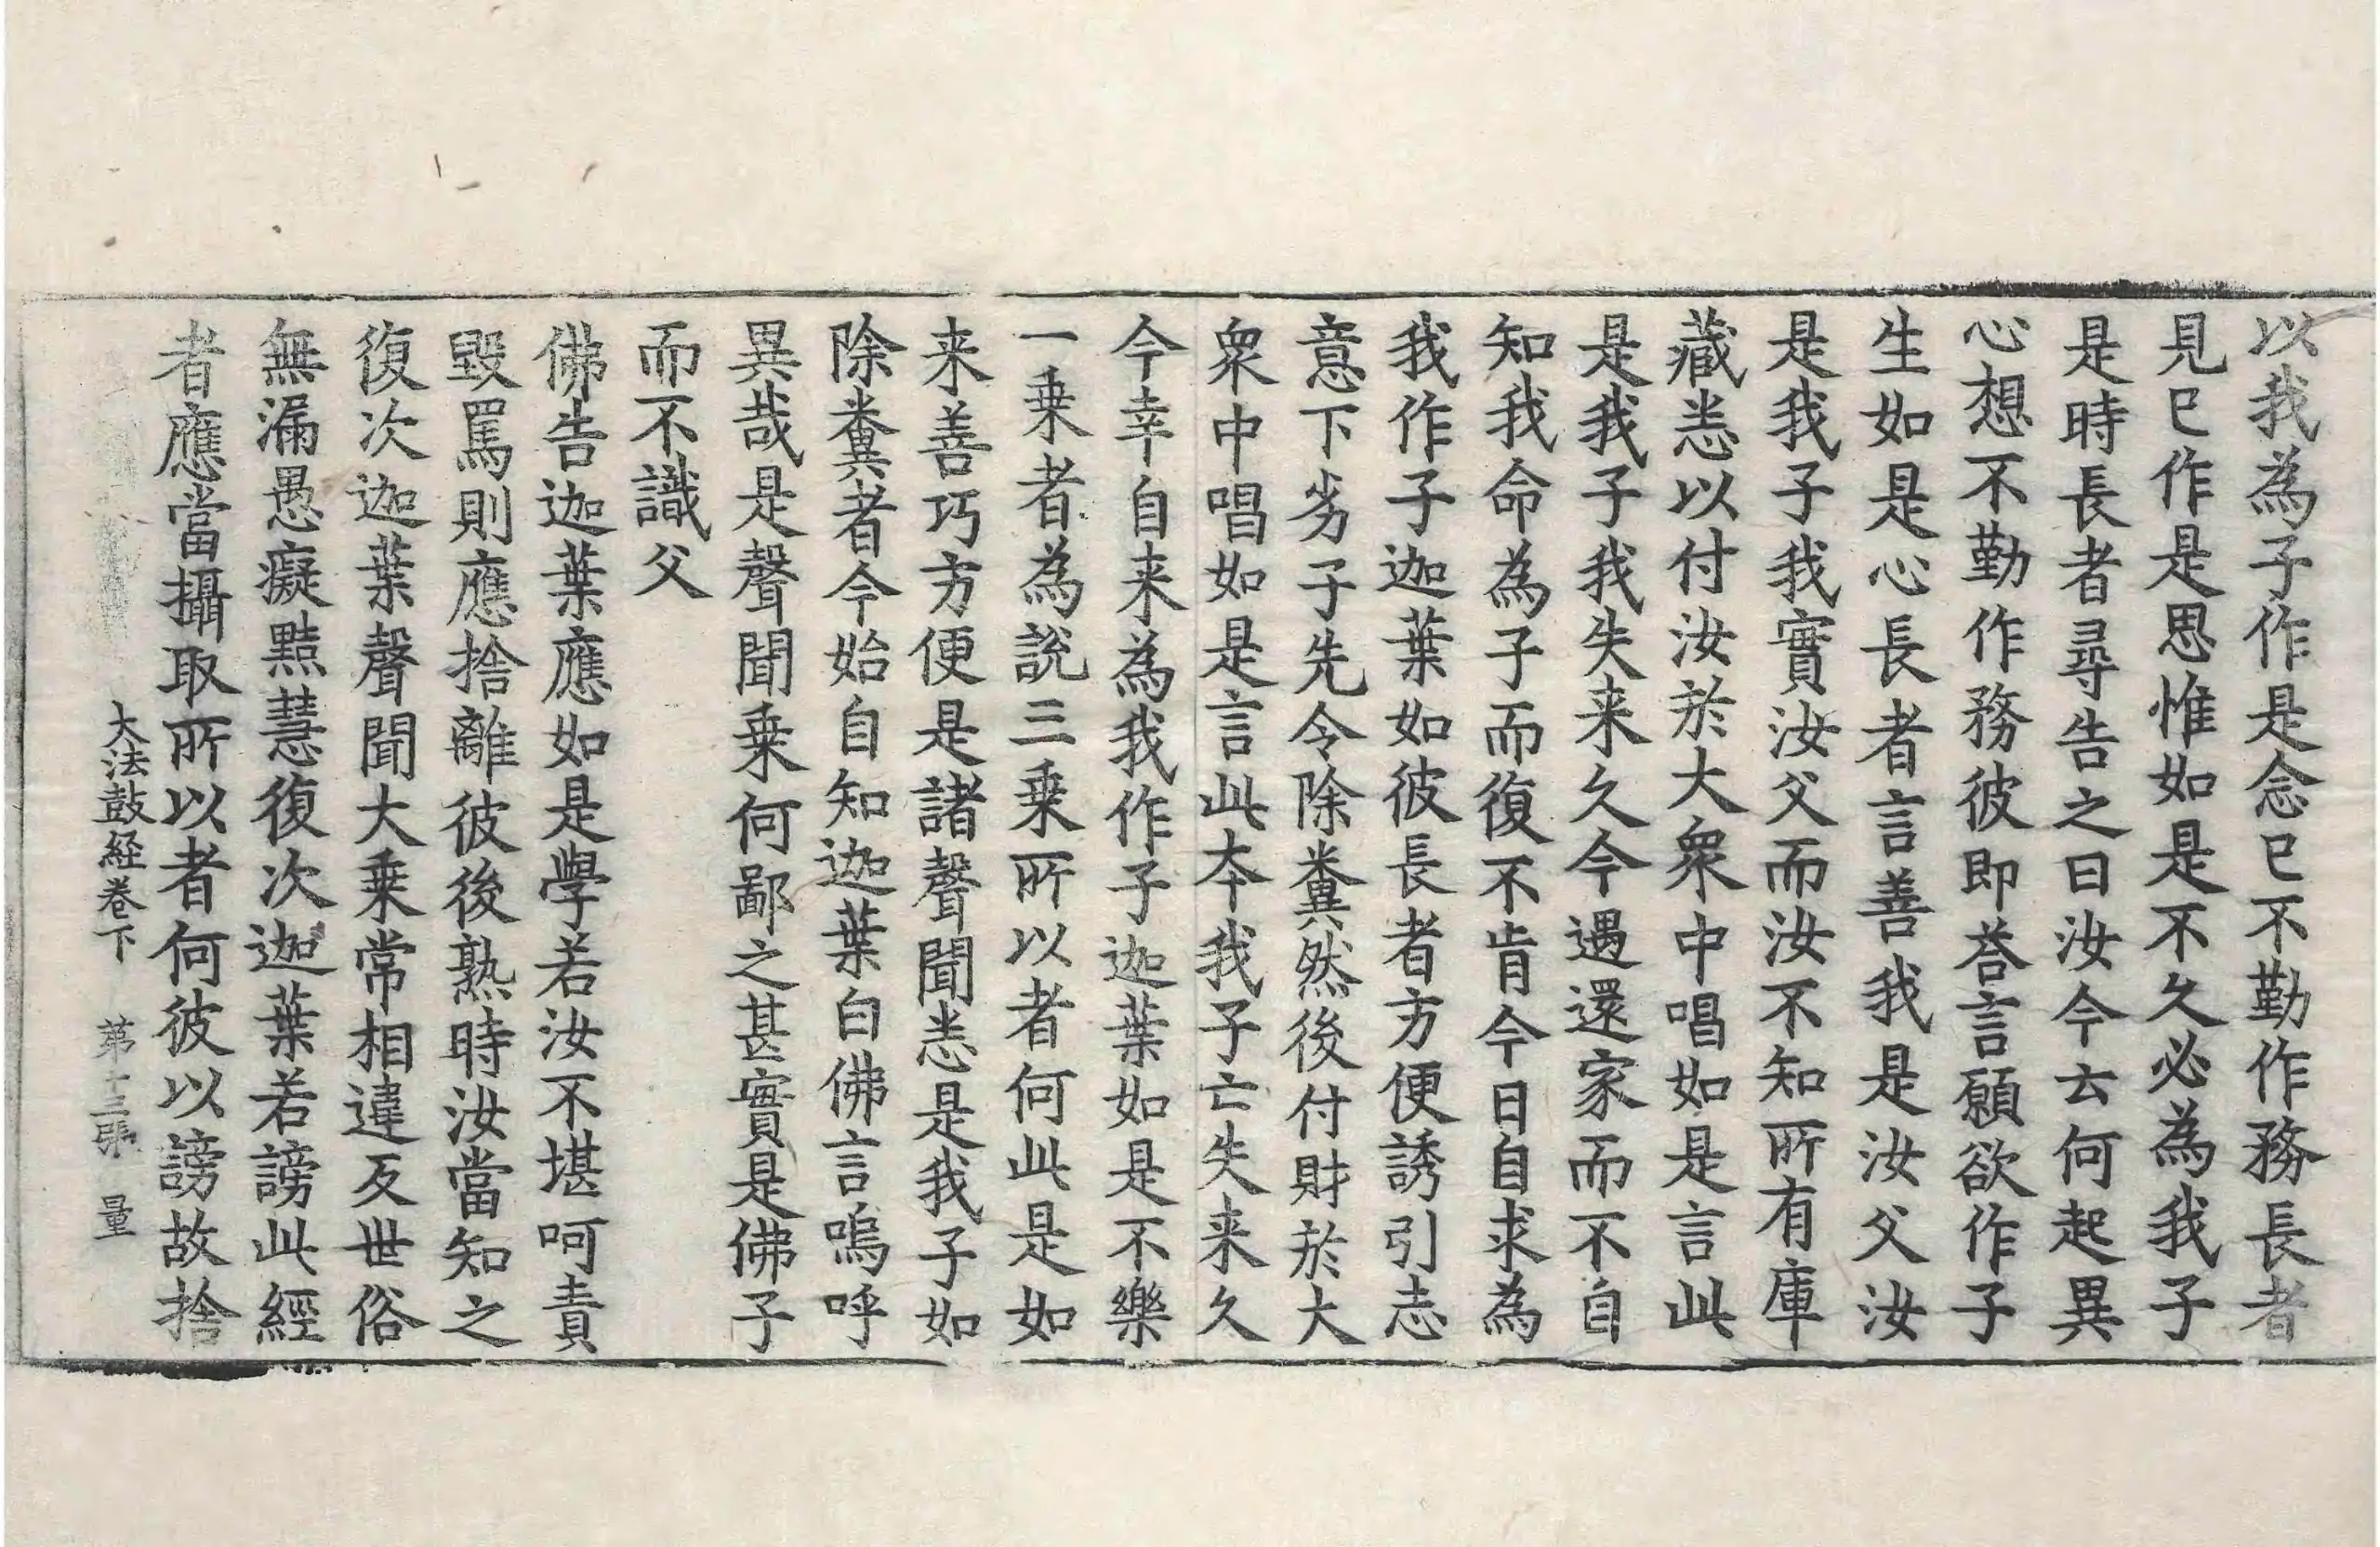 以我為子作是念已不勤作務長者
見已作是思惟如是不久必為我子
是時長者尋告之曰汝今云何起異
心想不勤作務彼即荅言願欲作子
生如是心長者言善我是汝父汝
是我子我實汝父而汝不知所有庫
藏悉以付汝於大衆中唱如是言此
是我子我失来久今遇還家而不自
知我命為子而復不肯今日自求為
我作子迦葉如彼長者方便誘引志
意下劣子先令除糞然後付財於大
衆中唱如是言此本我子亡失来久
今幸自来為我作子迦葉如是不樂
一乗者為說三乗所以者何此是如
来善巧方便是諸聲聞悉是我子如
除糞者今始自知迦葉白佛言嗚呼
異哉是聲聞乗何鄙之甚實是佛子
而不識父
佛告迦葉應如是學若汝不堪呵責
毀罵則應捨離彼後熟時汝當知之
復次迦葉聲聞大乗常相違反世俗
無漏愚癡黠慧復次迦葉若謗此經
者應當攝取所以者何彼以謗故捨
大法鼓経卷下 苐十三張 量